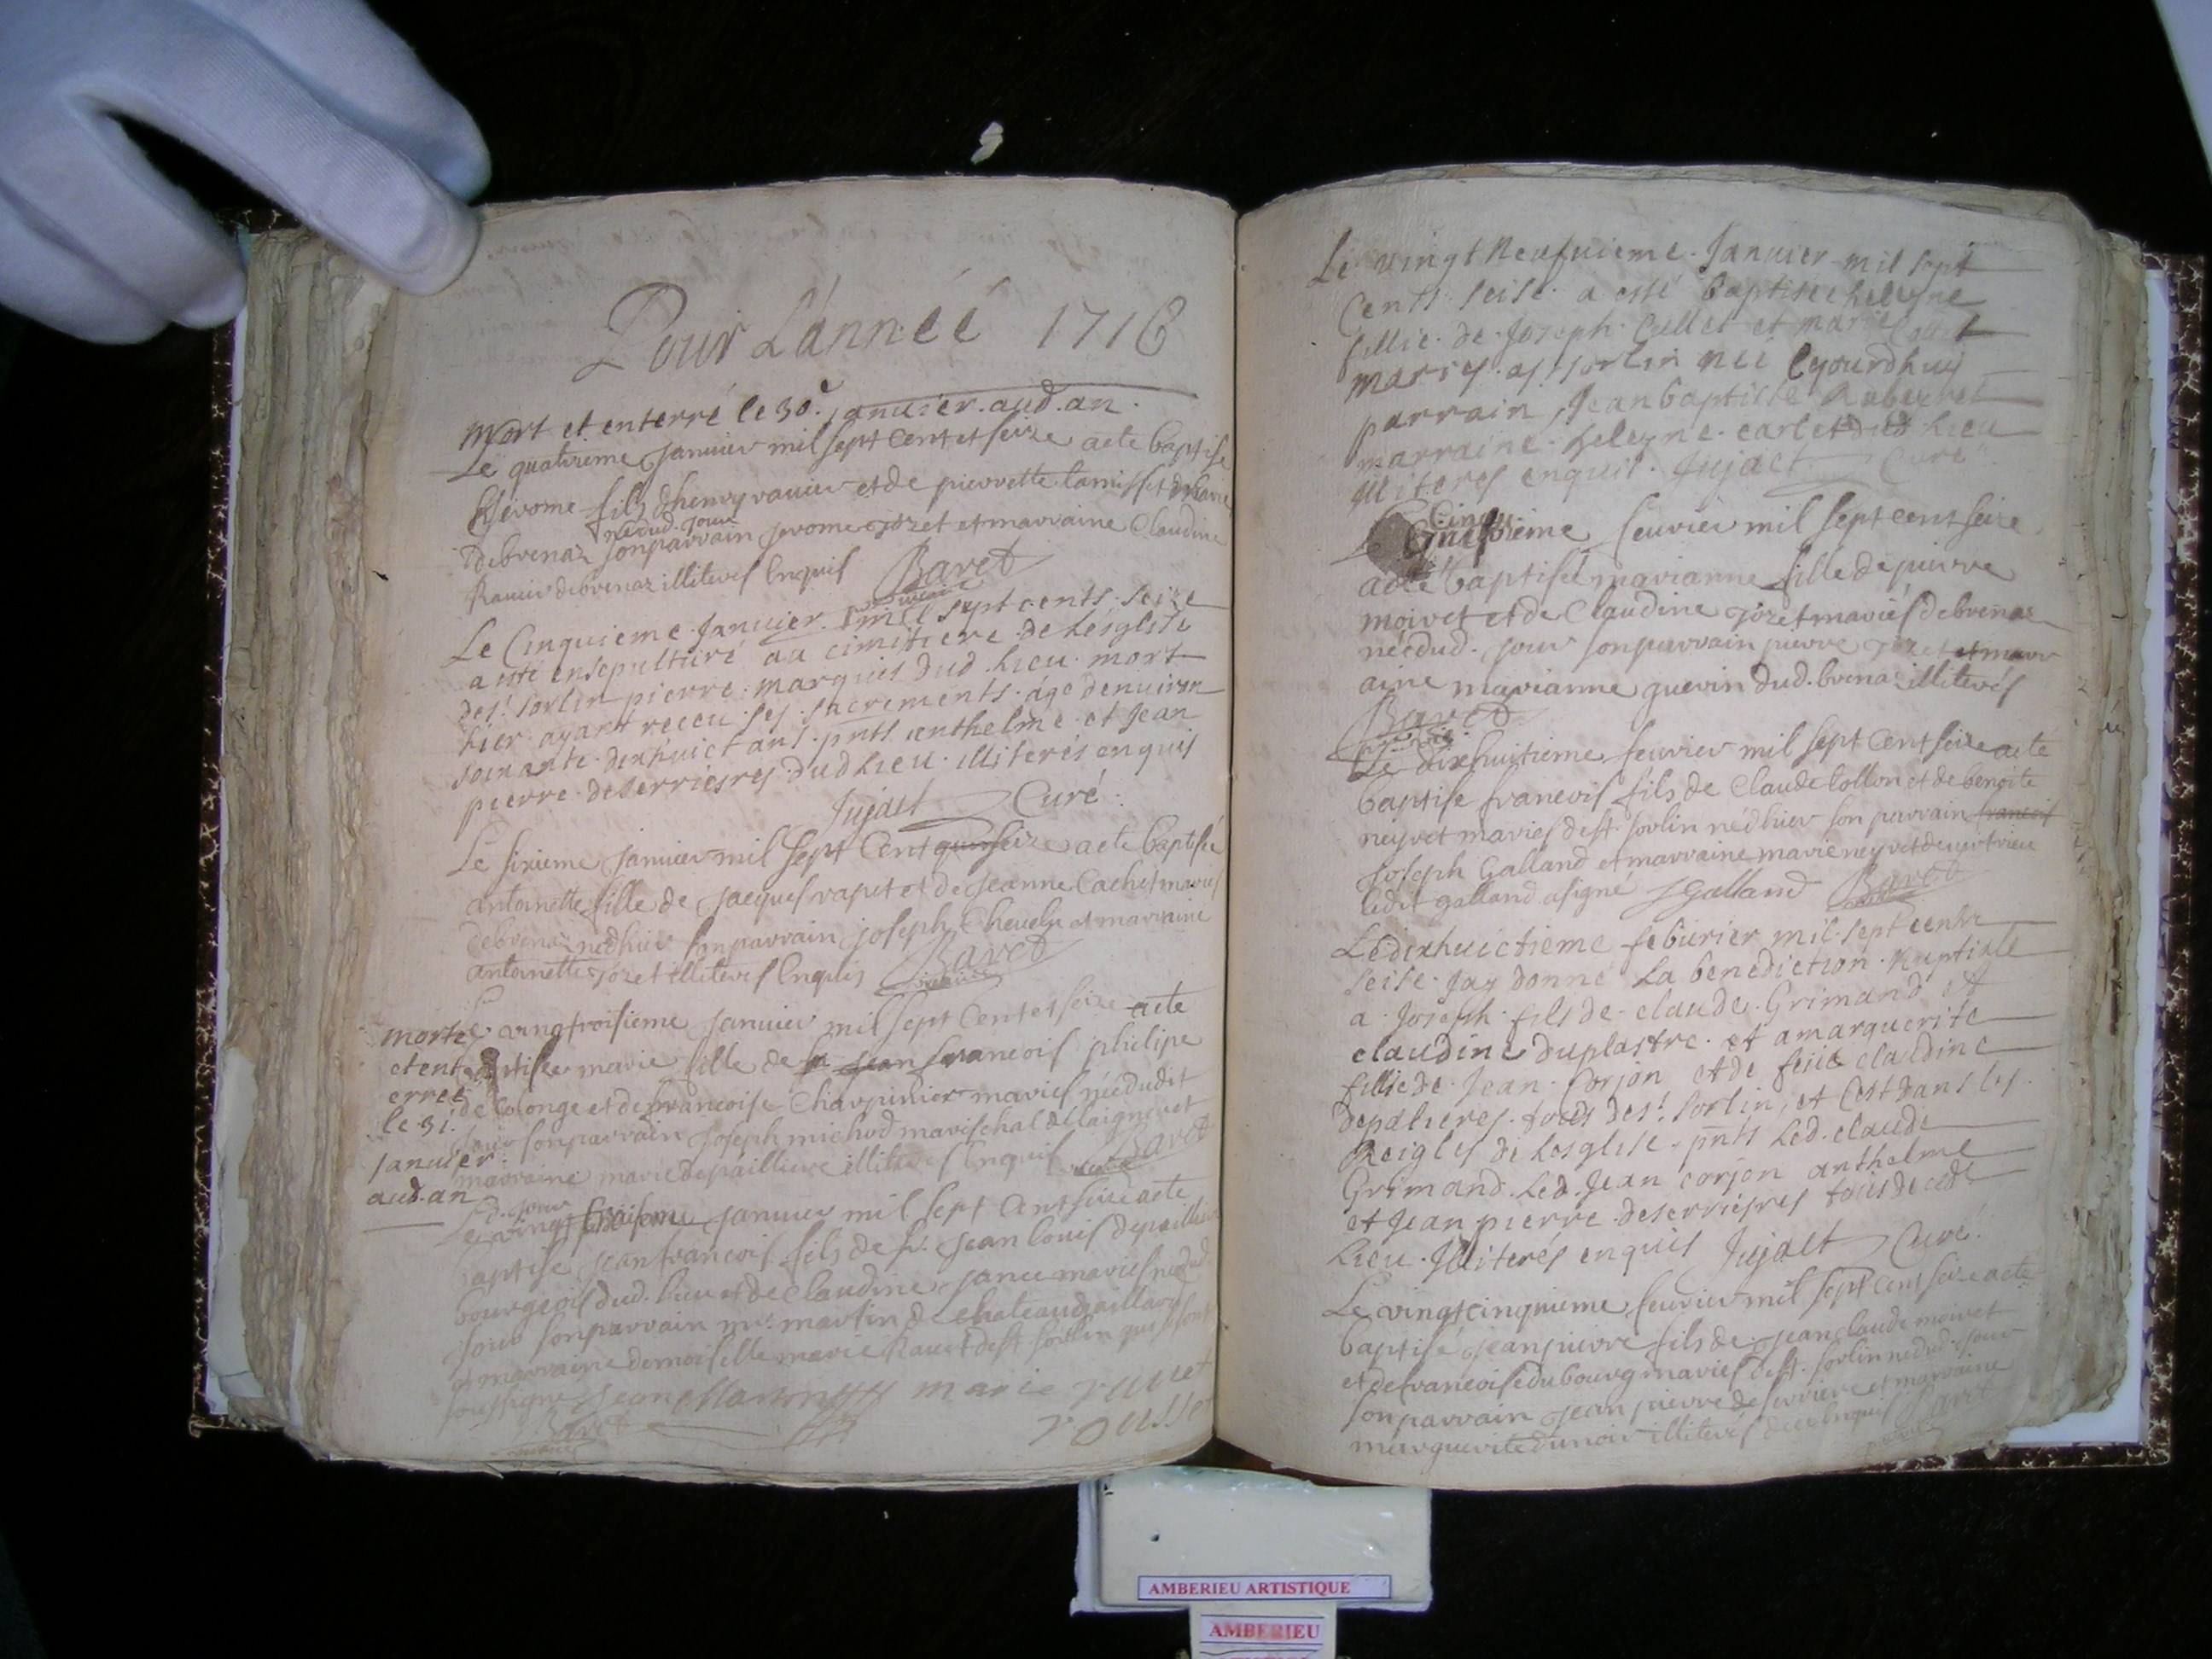 Pour L'année 1716
Mort et enterré le 30e. janvier. aud. an.
Le quatrieme Janvier mil sept Cent et seize a ete baptise
Jerome fils d'henry ravier et de pierrette tamisset
nédud. jour
debrenaz son parrain Jerome jozet et marraine Claudine
Ravier debrenaz illiterés Enquis Baret
vicaire
Le Cinquieme Janvier mil sept cents seize
a esté ensepulturé au cimitiere de Lésglise
de st. sorlin pierre marquis dud. lieu mort
hier ayant receu ses sacrements agé denuiron
soixante dixhuict ans pnts anthelme et Jean
pierre de serriesres dud lieu illiterés enquis
Jujact Curé.
Le sixieme Janvier mil sept Cent seize a ete baptisée
antoinette fille de Jacques raput et de Jeanne Cachet mariés
debrenaz née d'hier son parrain joseph Chevelu et marraine
antoinette jozet illiterés Enquis Baret
vicaire
morte
et ent
erreé
le 31.
janvier.
aud. an
Le vingtroisieme Janvier mil sept Cent et seize a ete
baptisée marie fille de jean francois phelipe
de Colonge et de francoise Charpinier mariés née dudit
Jour son parrain Joseph michod marischal de Laigneret
marraine marie depailliere illiterés Enquis Baret
d. jour
Le vingt troisieme Janvier mil sept Cent seize a ete
baptise jean francois fils de sr. Jean louis depailliere
bourgeois dud. lieu et de Claudine mariés né dud.
Jour son parrain mr. martin de chateaugaillard
et marraine demoiselle marie Ravet de st. sorlin qui
soussigné Jean Martin marie rauet
Baret rousset
vicaire
Le vingt Neufuieme Janvier mil sept
Cents seise a esté baptisee heleyne
fillie de Joseph Cullet et marie Collet
mariés a st sorlin neé Cejourdhuy
parrain Jean baptiste
marraine heleyne carlet dud lieu
illiterés enquis. Jujact Curé.
Cinqu
Le Cinquieme feurier mil sept cent seize
a eté baptisée marianne fille de pierre
moiret et de Claudine jozet mariés debrenaz
née dud. jour son parrain pierre jozet et marr
aine marianne guerin dud. brenaz illiterés
Baret
vicaire
Le dixhuitieme feurier mil sept Cent seize a ete
baptise francois fils de Claude Collon et de benoite
neyret mariés de st. sorlin né d'hier son parrain francois
Joseph Galland et marraine marie neyret
ledit galland a signé JGalland Baret
Le dixhuictieme feburier mil sept cents
seise Jay donné La benediction Nuptiale
a Joseph fils de claude Grimand et
claudine duplastre et a marguerite
fillie de Jean Corjon et de feüe claudine
depalieres tous de st. sorlin, et C'est dans les
Reigles de Lesglise pnts Led. claude
Grimand Led. Jean corjon anthelme
et Jean pierre deserriesres tous de cedt
Lieu. Illiterés enquis Jujact Curé.
Le vingtcinquieme feurier mil sept cent seize a ete
baptisé jean pierre fils de jean claude moiret
et de francoise dubourg mariés de st. sorlin né dud. jour
son parrain jean pierre de serriere et marraine
marguerite dunoir illiterés de ce Enquis Baret
AMBERIEU ARTISTIQUE
AMBERIEU